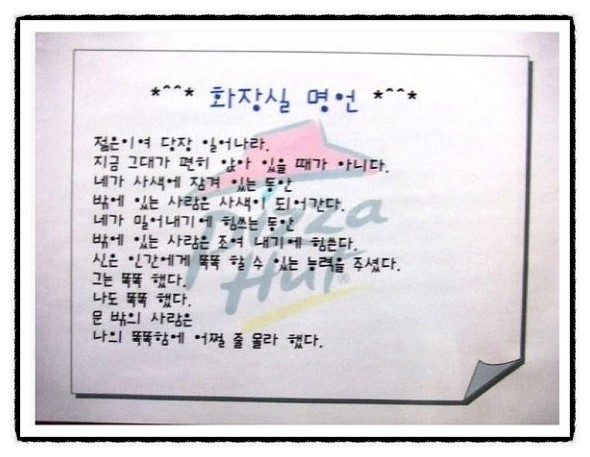 *^^* 화장실 명언 *^^*
젊은이여 당장 일어나라.
지금 그대가 편히 앉아 있을 때가 아니다.
네가 사색에 잠겨 있는 동안
밖에 있는 사람은 사색이 되어간다.
네가 밀어내기에 힘쓰는 동안
밖에 있는 사람은 조여 내기에 힘쓴다.
신은 인간에게 똑똑 할 수 있는 능력을 주셨다.
그는 똑똑 했다.
나도 똑똑 했다.
문 밖의 사람은
나의 똑똑함에 어쩔 줄 몰라 했다.
Pizza
Hut®